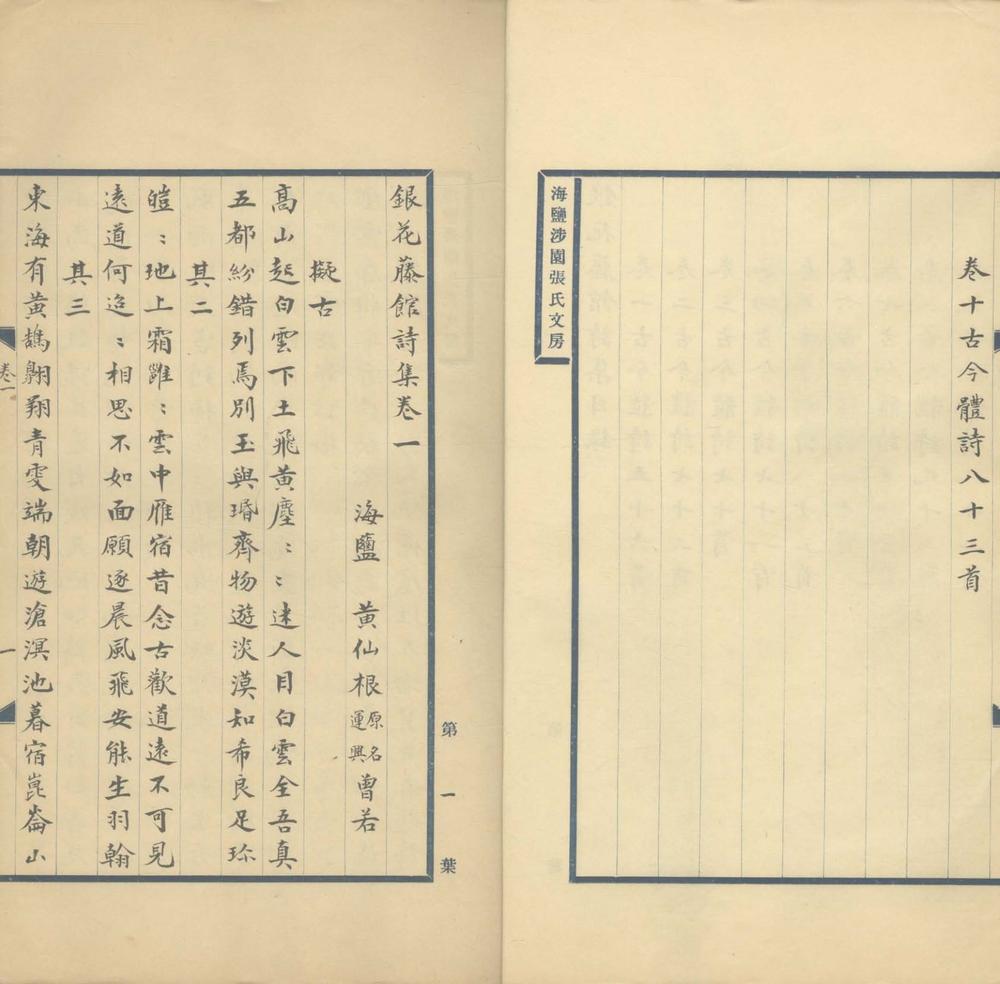 卷十古今體詩八十三首
海鹽涉園張氏文房
第一葉
銀花藤館詩集卷一
海鹽 黃仙根原名運興曾若
擬古
高山起白雲下土飛黃塵〻〻迷人目白雲全吾真
五都紛錯列焉別玉與瑉齊物遊淡漠知希良足珎
其二
皚〻地上霜雝〻雲中雁宿昔念古歡道遠不可見
遠道何迢〻相思不如面願逐晨風飛安能生羽翰
其三
東海有黃鵠翱翔青雯端朝遊滄溟池暮宿崑崙山
卷一
一